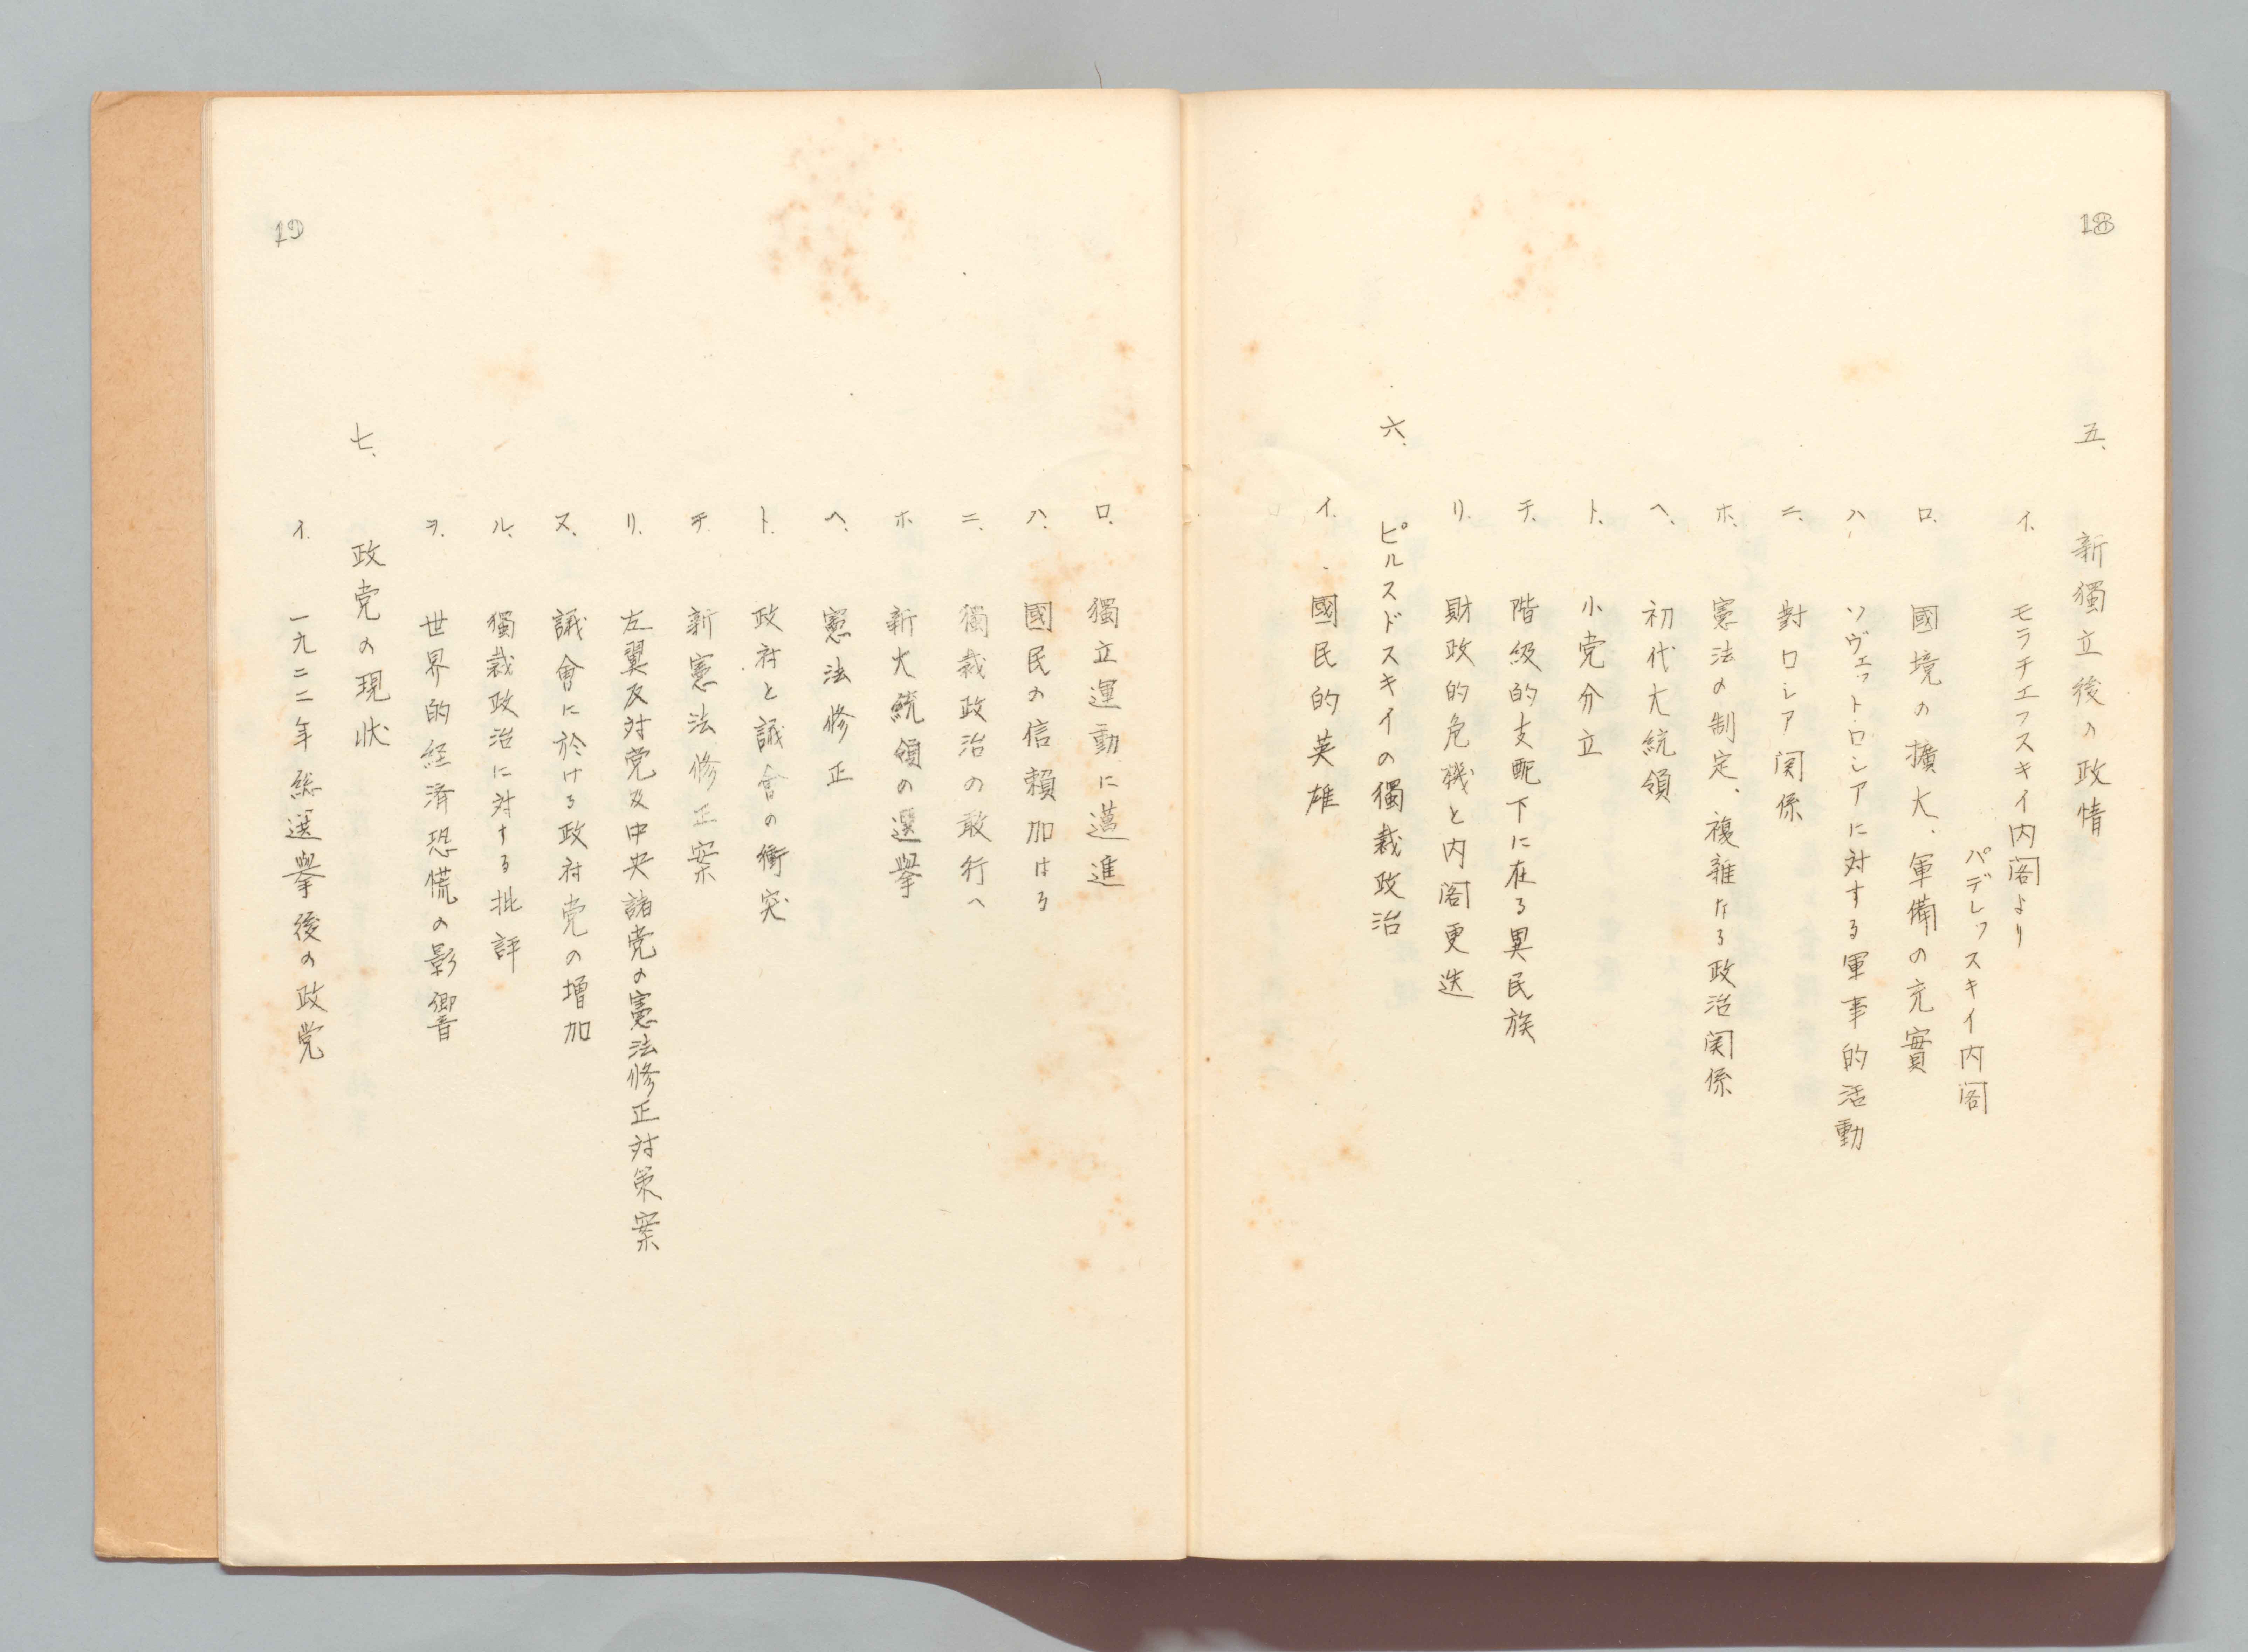 18
五、 新獨立後の政情
イ、 モラチエフスキイ内閣より
パデレフスキイ内閣
ロ、 國境の擴大、軍備の充實
ハ、 ソヴェット・ロシアに対する軍事的活動
ニ、 對ロシア関係
ホ、 憲法の制定、複雑なる政治関係
ヘ、 初代大統領
ト、 小党分立
チ、 階級的支配下に在る異民族
リ、 財政的危機と内閣更迭
六、 ピルスドスキイの獨裁政治
イ、 國民的英雄
ロ、 獨立運動に邁進
ハ、 國民の信頼加はる
ニ、 獨裁政治の敢行へ
ホ、 新大統領の選擧
ヘ、 憲法修正
ト、 政府と議會の衝突
チ、 新憲法修正案
リ、 左翼反対党及中央諸党の憲法修正対策案
ヌ、 議會に於ける政府党の増加
ル、 獨裁政治に対する批評
ヲ、 世界的経済恐慌の影響
七、 政党の現状
イ、 一九二二年総選擧後の政党
19